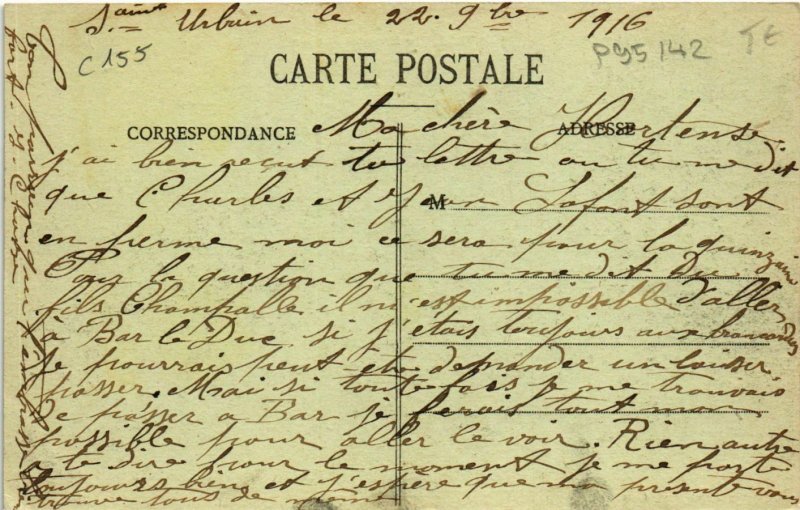 Saint Urbain le 22 9bre 1916
C 155
P95142 TE
CARTE POSTALE
CORRESPONDANCE
ADRESSE
M
Ma chère Hortense
j'ai bien reçut tu lettre ou tu me dit
que Charles et Jean Lafont sont
en perme moi ce sera pour la quinzaine
Pour la question que tu me dit Du
fils Champalle il m'est impossible d'aller
à Bar le Duc si j'étais toujours aux brancardiers
je pourrais peut-etre demander un laisser
passer. Mai si toute fois je me trouvais
de passer a Bar je ferais tout mon
possible pour aller le voir. Rien autre
te dire pour le moment je me porte
toujours bien et j'espère que ma présente vous
trouve tous de meme